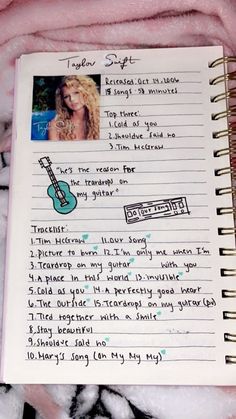 Taylor Swift
Released: Oct 24, 2006
15 songs · 53 minutes
Top three:
1. Cold as you
2. Should've said no
3. Tim McGraw
"he's the reason FOR
the teardrops on
my guitar"
our song
Tracklist:
1. Tim McGraw 11. Our Song
2. Picture to burn 12. I'm only me when I'm
3. Teardrop on my guitar with you
4. A place in this world 13. invisible
5. Cold as you 14. A perfectly good heart
6. The Outside 15. Teardrops on my guitar (pv)
7. Tied together with a smile
8. Stay beautiful
9. Should've said no
10. Mary's song (oh My My My)